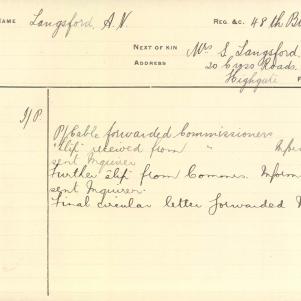 NAME Langsford, A.V. REG. &C. 48th B
NEXT OF KIN Mrs S. Langsford.
ADDRESS 20 Cross Roads.
Highgate
I/P. P/Cable forwarded Commissioners
"Slip" received from "
sent Inquirer
Further slip from Commrs. Inform
sent Inquirer.
Final circular letter forwarded